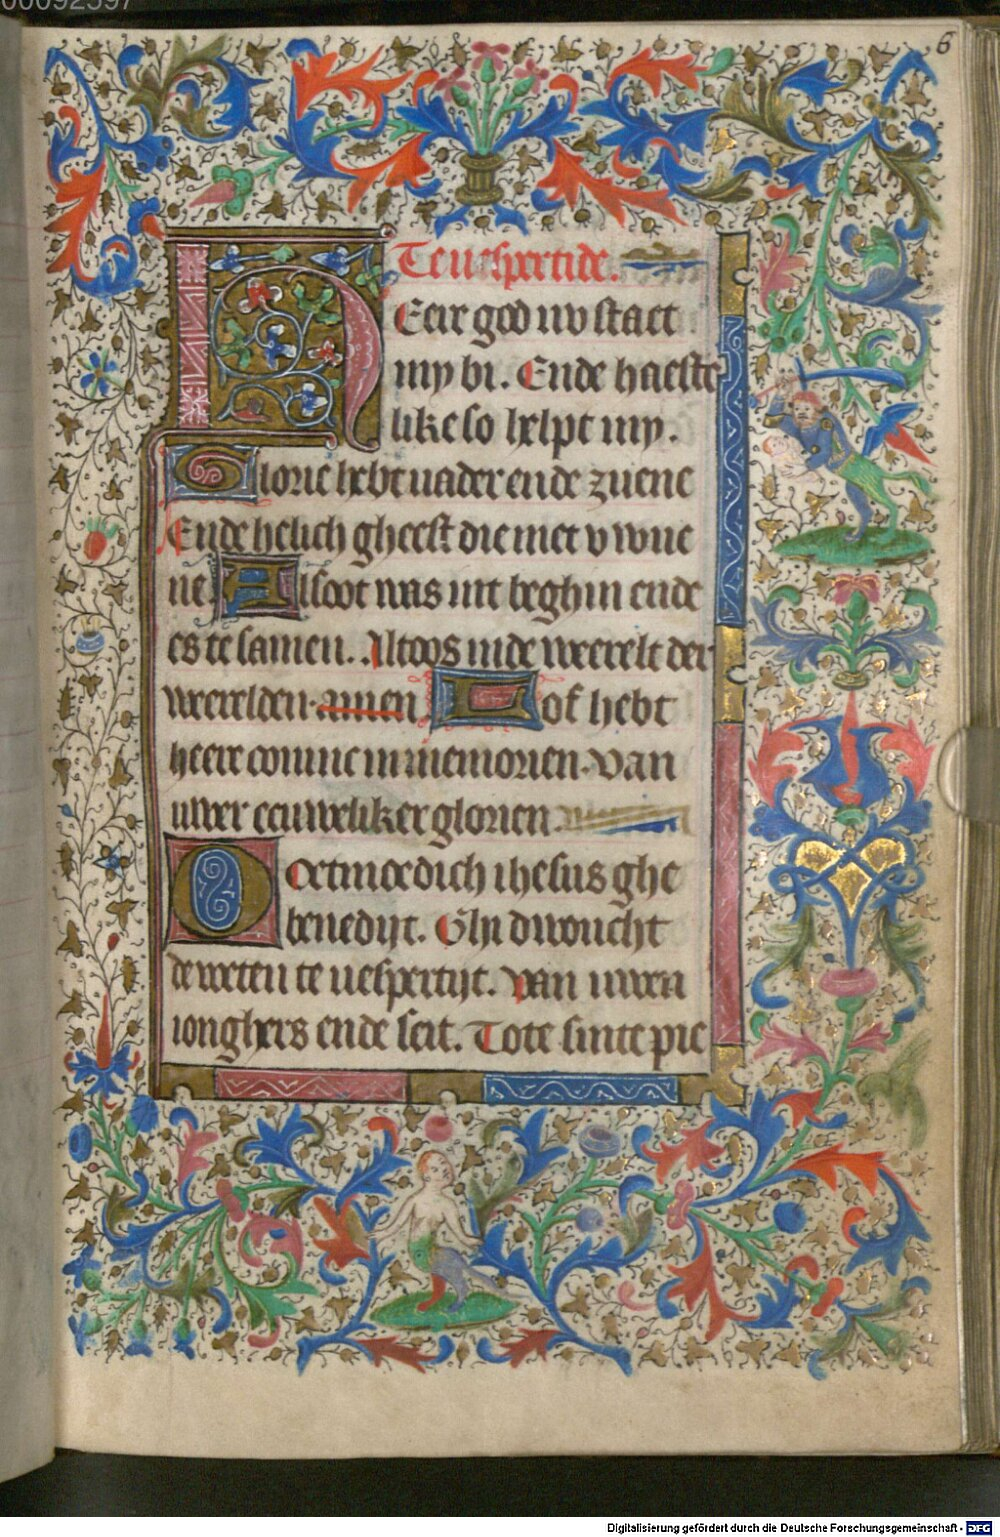 6
Te uespertide.
HEeir god nv staet
my bi. Ende haeste
like so helpt my.
Glorie hebt uader ende zuene
Ende helich gheest die met v wue
ne Alsoot was int beghin ende
es te samen. Altoos inde weerelt der
weerelden. amen Lof hebt
heere coninc in memorien. van
uwer eeuweliker glorien.
Oetmoedich ihesus ghe
benedijt. Ghi dwoucht
de weten te uespertijt. van uwen
ionghers ende seit. Tote sinte pie
Digitalisierung gefördert durch die Deutsche Forschungsgemeinschaft - DFG